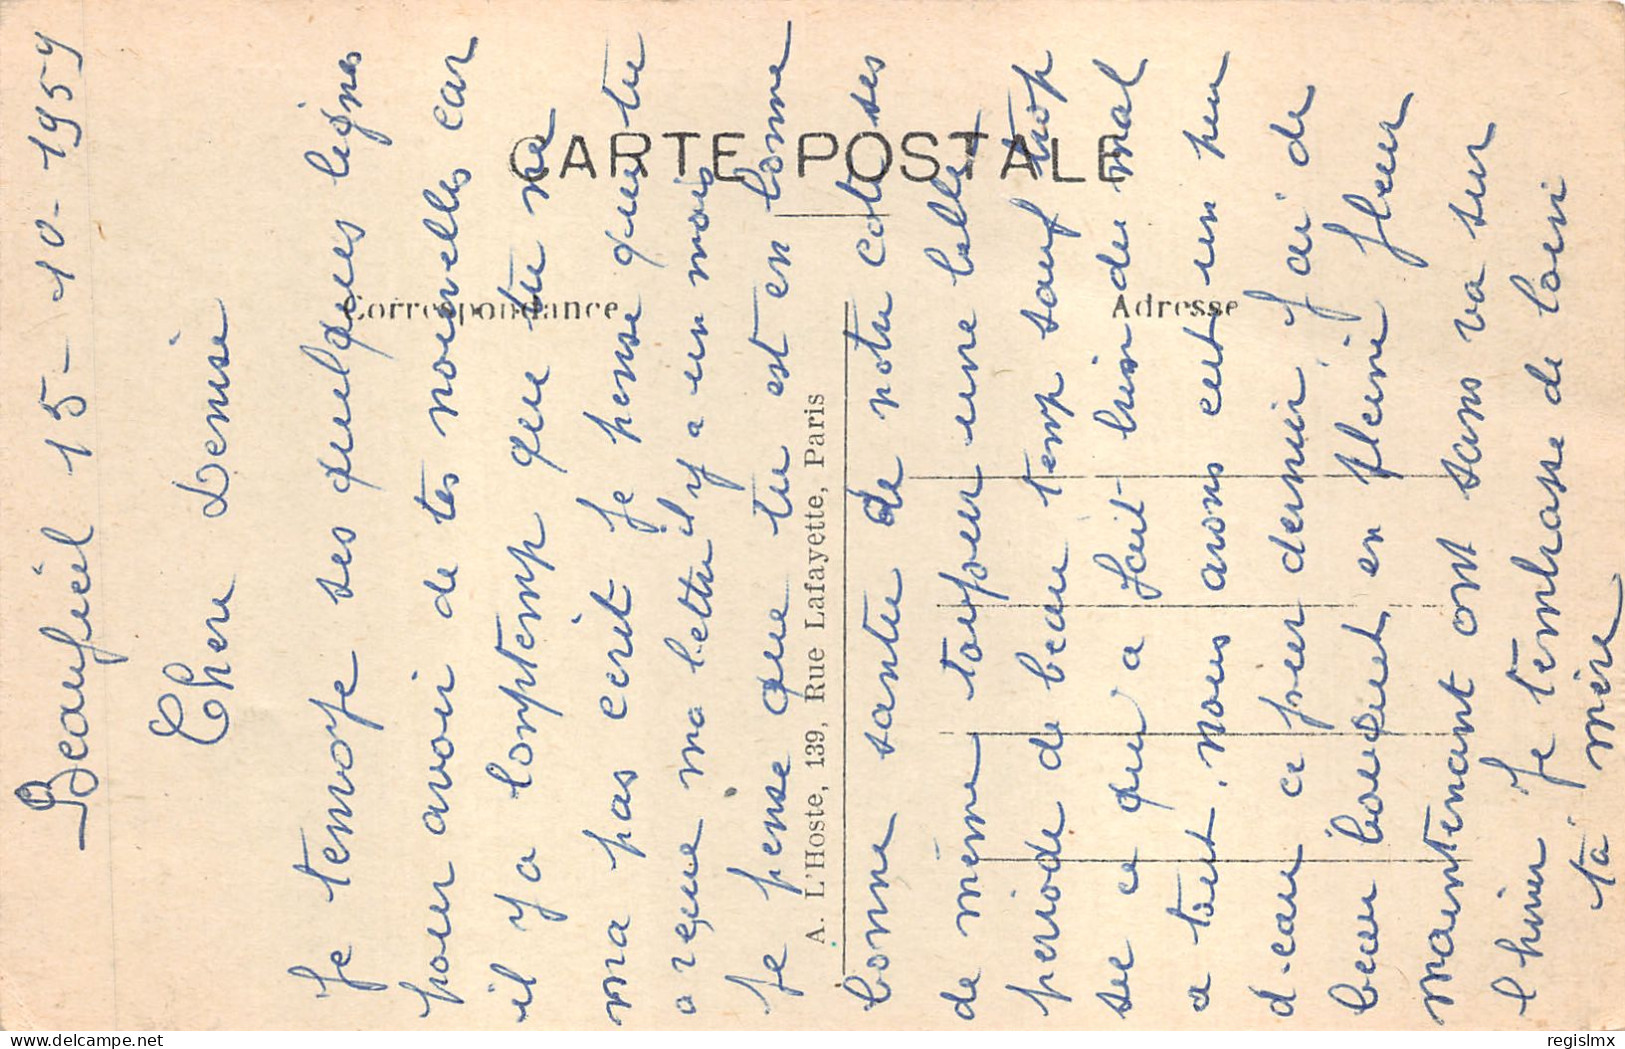 Beauficel 15-10-1959
Cher Denise
Je tenvoye ses quelques lignes
pour avoir de tes nouvelles car
il y a lonptemp que tu ne
ma pas ecrit Je pense que tu
a reçue ma lettre il y a un mois
Je pense que tu est en bonne
bonne santée de notre coté ses
de même toujour une belle
periode de beau temp sauf trop
sec ce qui a fait bien du mal
a tout, nous avons eut un peu
d-eau ce jeur dernier, J ai de
beau bouquet en pleine fleur
maintenant ont sans va sur
l hiver Je tembrasse de loin
ta mère
CARTE POSTALE
Correspondance
Adresse
A. L'Hoste, 139, Rue Lafayette, Paris
regislmx